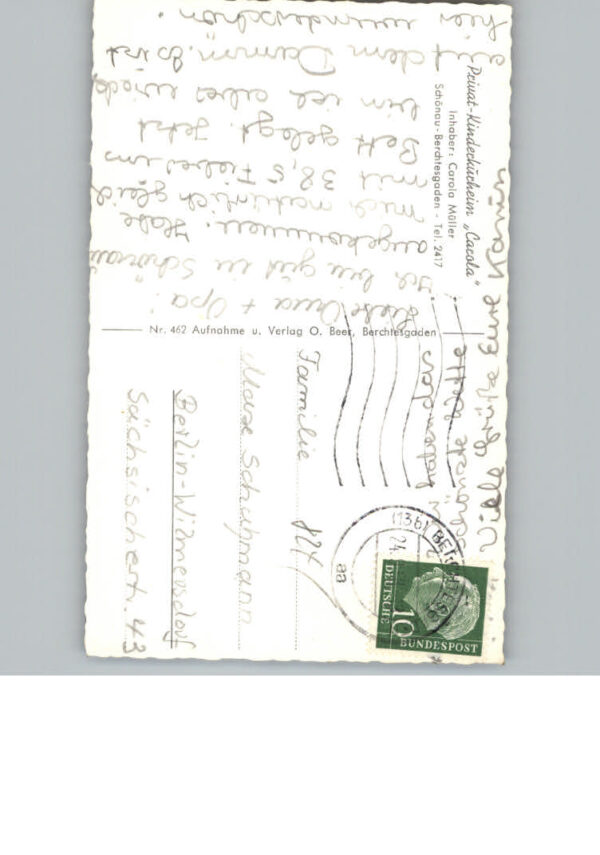 Privat-Kinderkurheim „Carola"
Inhaber: Carola Müller
Schönau-Berchtesgaden - Tel. 2417
Liebe Oma + Opa!
Ich bin gut in Schönau
angekommen. Habe
mich natürlich gleich
mit 38,5 Fieber ins
Bett gelegt. Jetzt
bin ich aber wieder
auf dem Damm. Es ist
hier wunderschön.
Viele Grüße Eure
Nr. 462 Aufnahme u. Verlag O. Beer, Berchtesgaden
(13b) BERCHTESG
24
aa
DEUTSCHE
BUNDESPOST
10
824
Familie
Max Schuhmann
Berlin-Wilmersdorf
Sächsischestr. 43